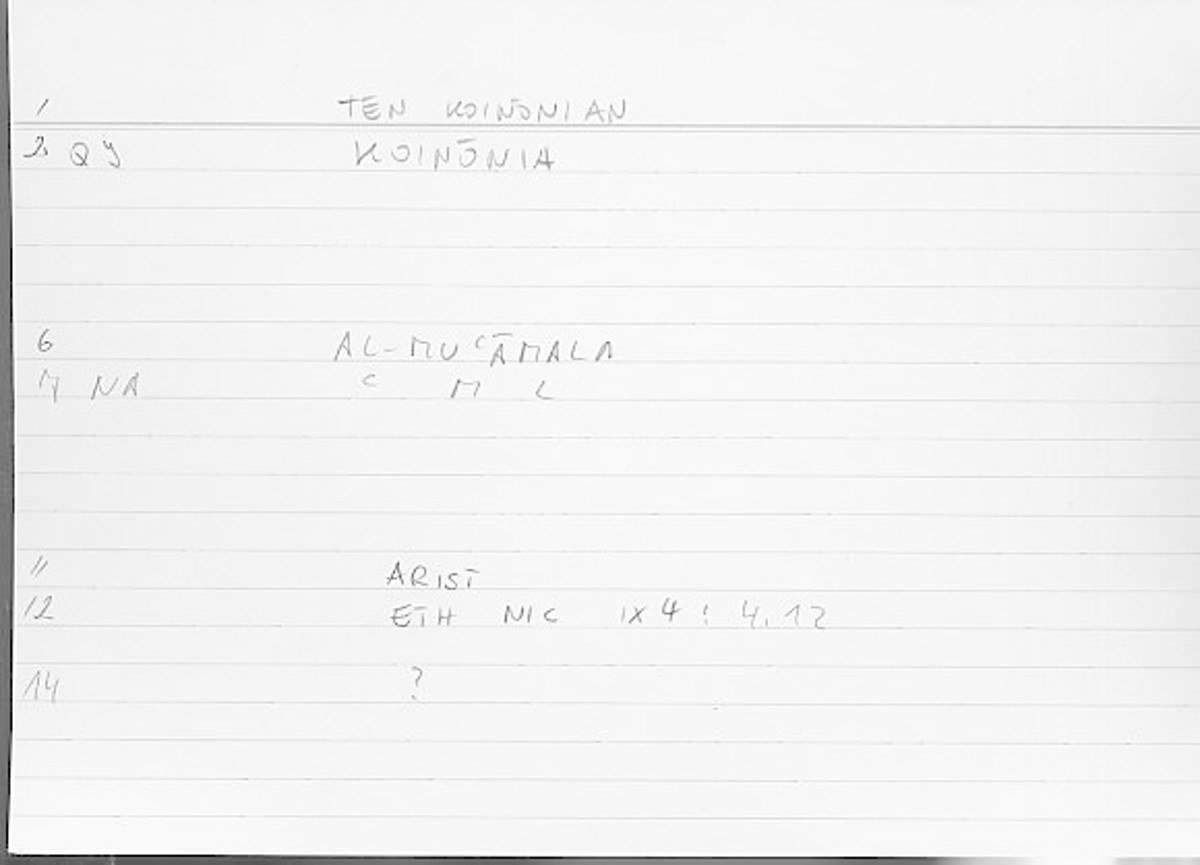 1 TEN KOINŌNIAN
2 QY KOINŌNIA
6 AL-MUʿĀMALA
NA ʿ M L
11 ARIST
12 ETH NIC IX 4 : 4.12
14 ?